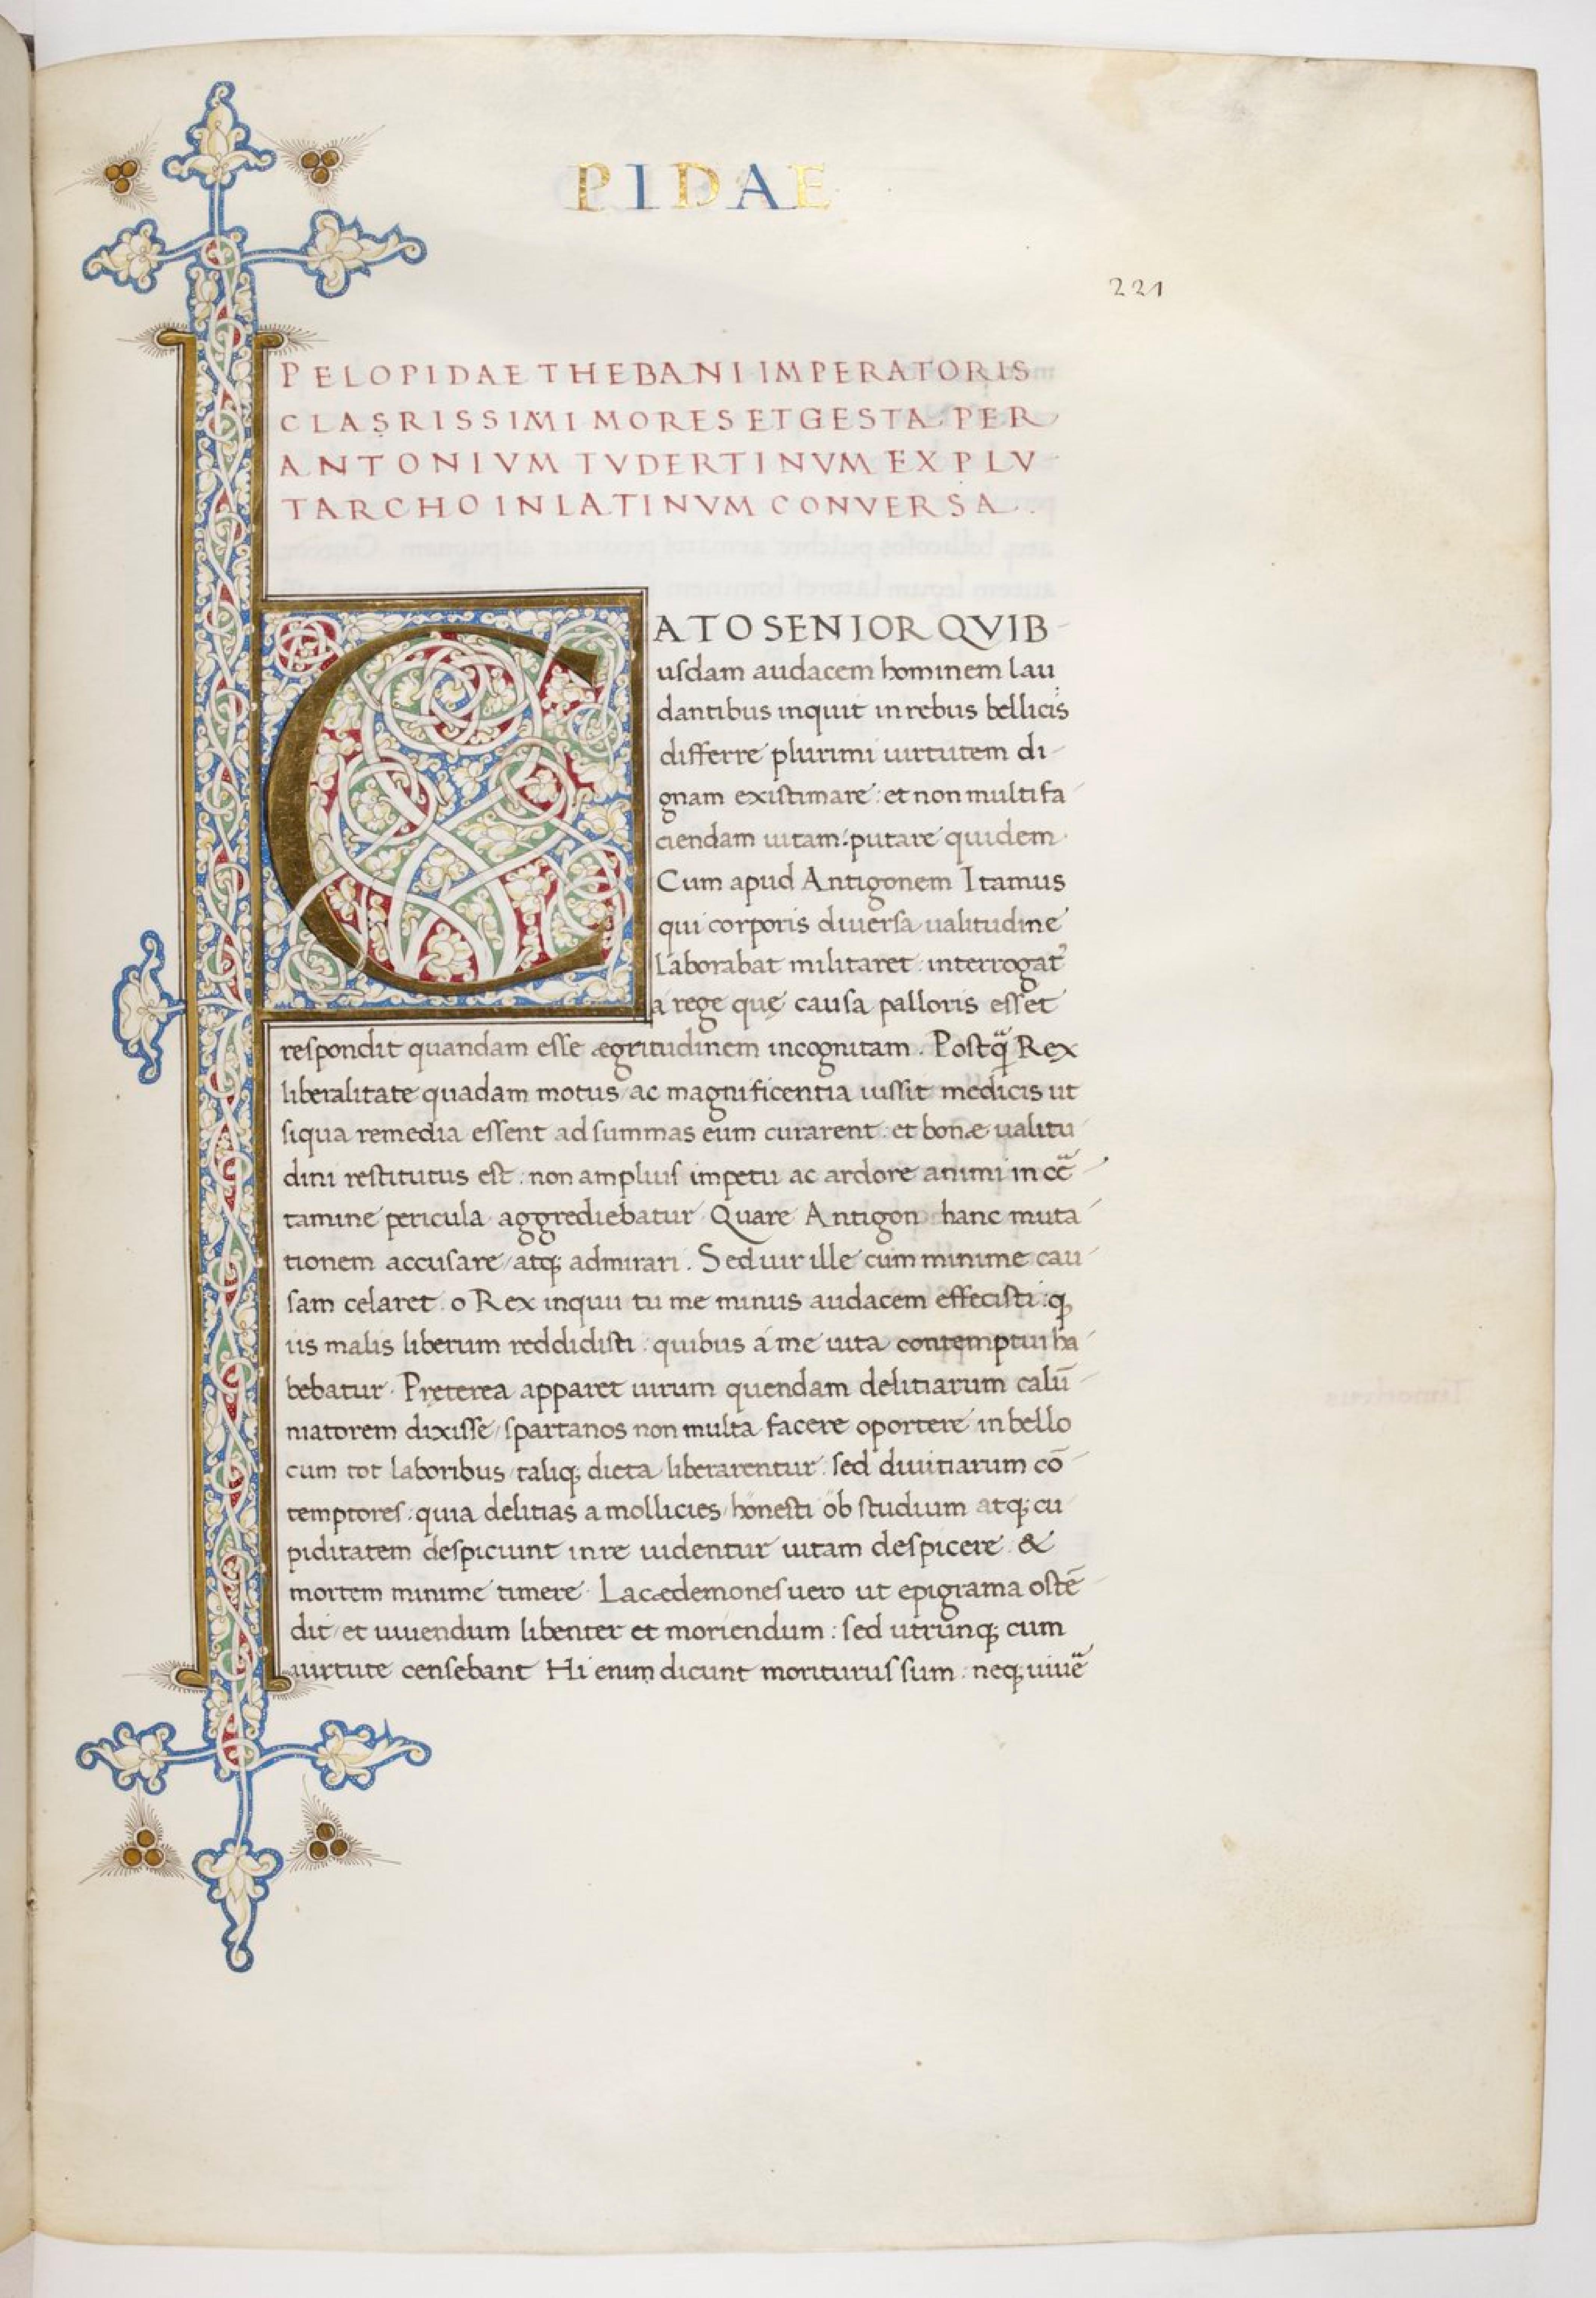 PIDAE
221
PELOPIDAE THEBANI IMPERATORIS
CLASRISSIMI MORES ET GESTA PER
ANTONIVM TVDERTINVM EX PLV
TARCHO IN LATINVM CONVERSA.
CATO SENIOR QVIB-
usdam audacem hominem lau
dantibus inquit in rebus bellicis
differre plurimi uirtutem di-
gnam existimare: et non multi fa-
ciendam uitam: putare quidem.
Cum apud Antigonem Itamus
qui corporis diuersa ualitudine
laborabat militaret: interrogatꝰ
a rege quę causa palloris esset
respondit quandam esse ægritudinem incognitam. Postq̃ Rex
liberalitate quadam motus ac magnificentia iussit medicis ut
siqua remedia essent ad summas eum curarent: et bonæ ualitu-
dini restitutus est: non amplius impetu ac ardore animi in cc̃-
tamine pericula aggrediebatur. Quare Antigon hanc muta-
tionem accusare/ atq; admirari. Sed uir ille cum minime cau-
sam celaret. o Rex inquit tu me minus audacem effecisti: ꝙ
iis malis liberum reddidisti: quibus a me uita contemptui ha-
bebatur. Pręterea apparet uirum quendam delitiarum calū-
niatorem dixisse/ spartanos non multa facere oportere in bello
cum tot laboribus taliq; dieta liberarentur: sed diuitiarum cō-
temptores: quia delitias a mollicies/ honesti ob studium atq; cu-
piditatem despiciunt in re uidentur uitam despicere &
mortem minime timere. Lacædemones uero ut epigrama ostē-
dit/ et uiuendum libenter et moriendum: sed utrunq; cum
uirtute censebant Hi enim dicunt moriturus sum: neq; uiuē